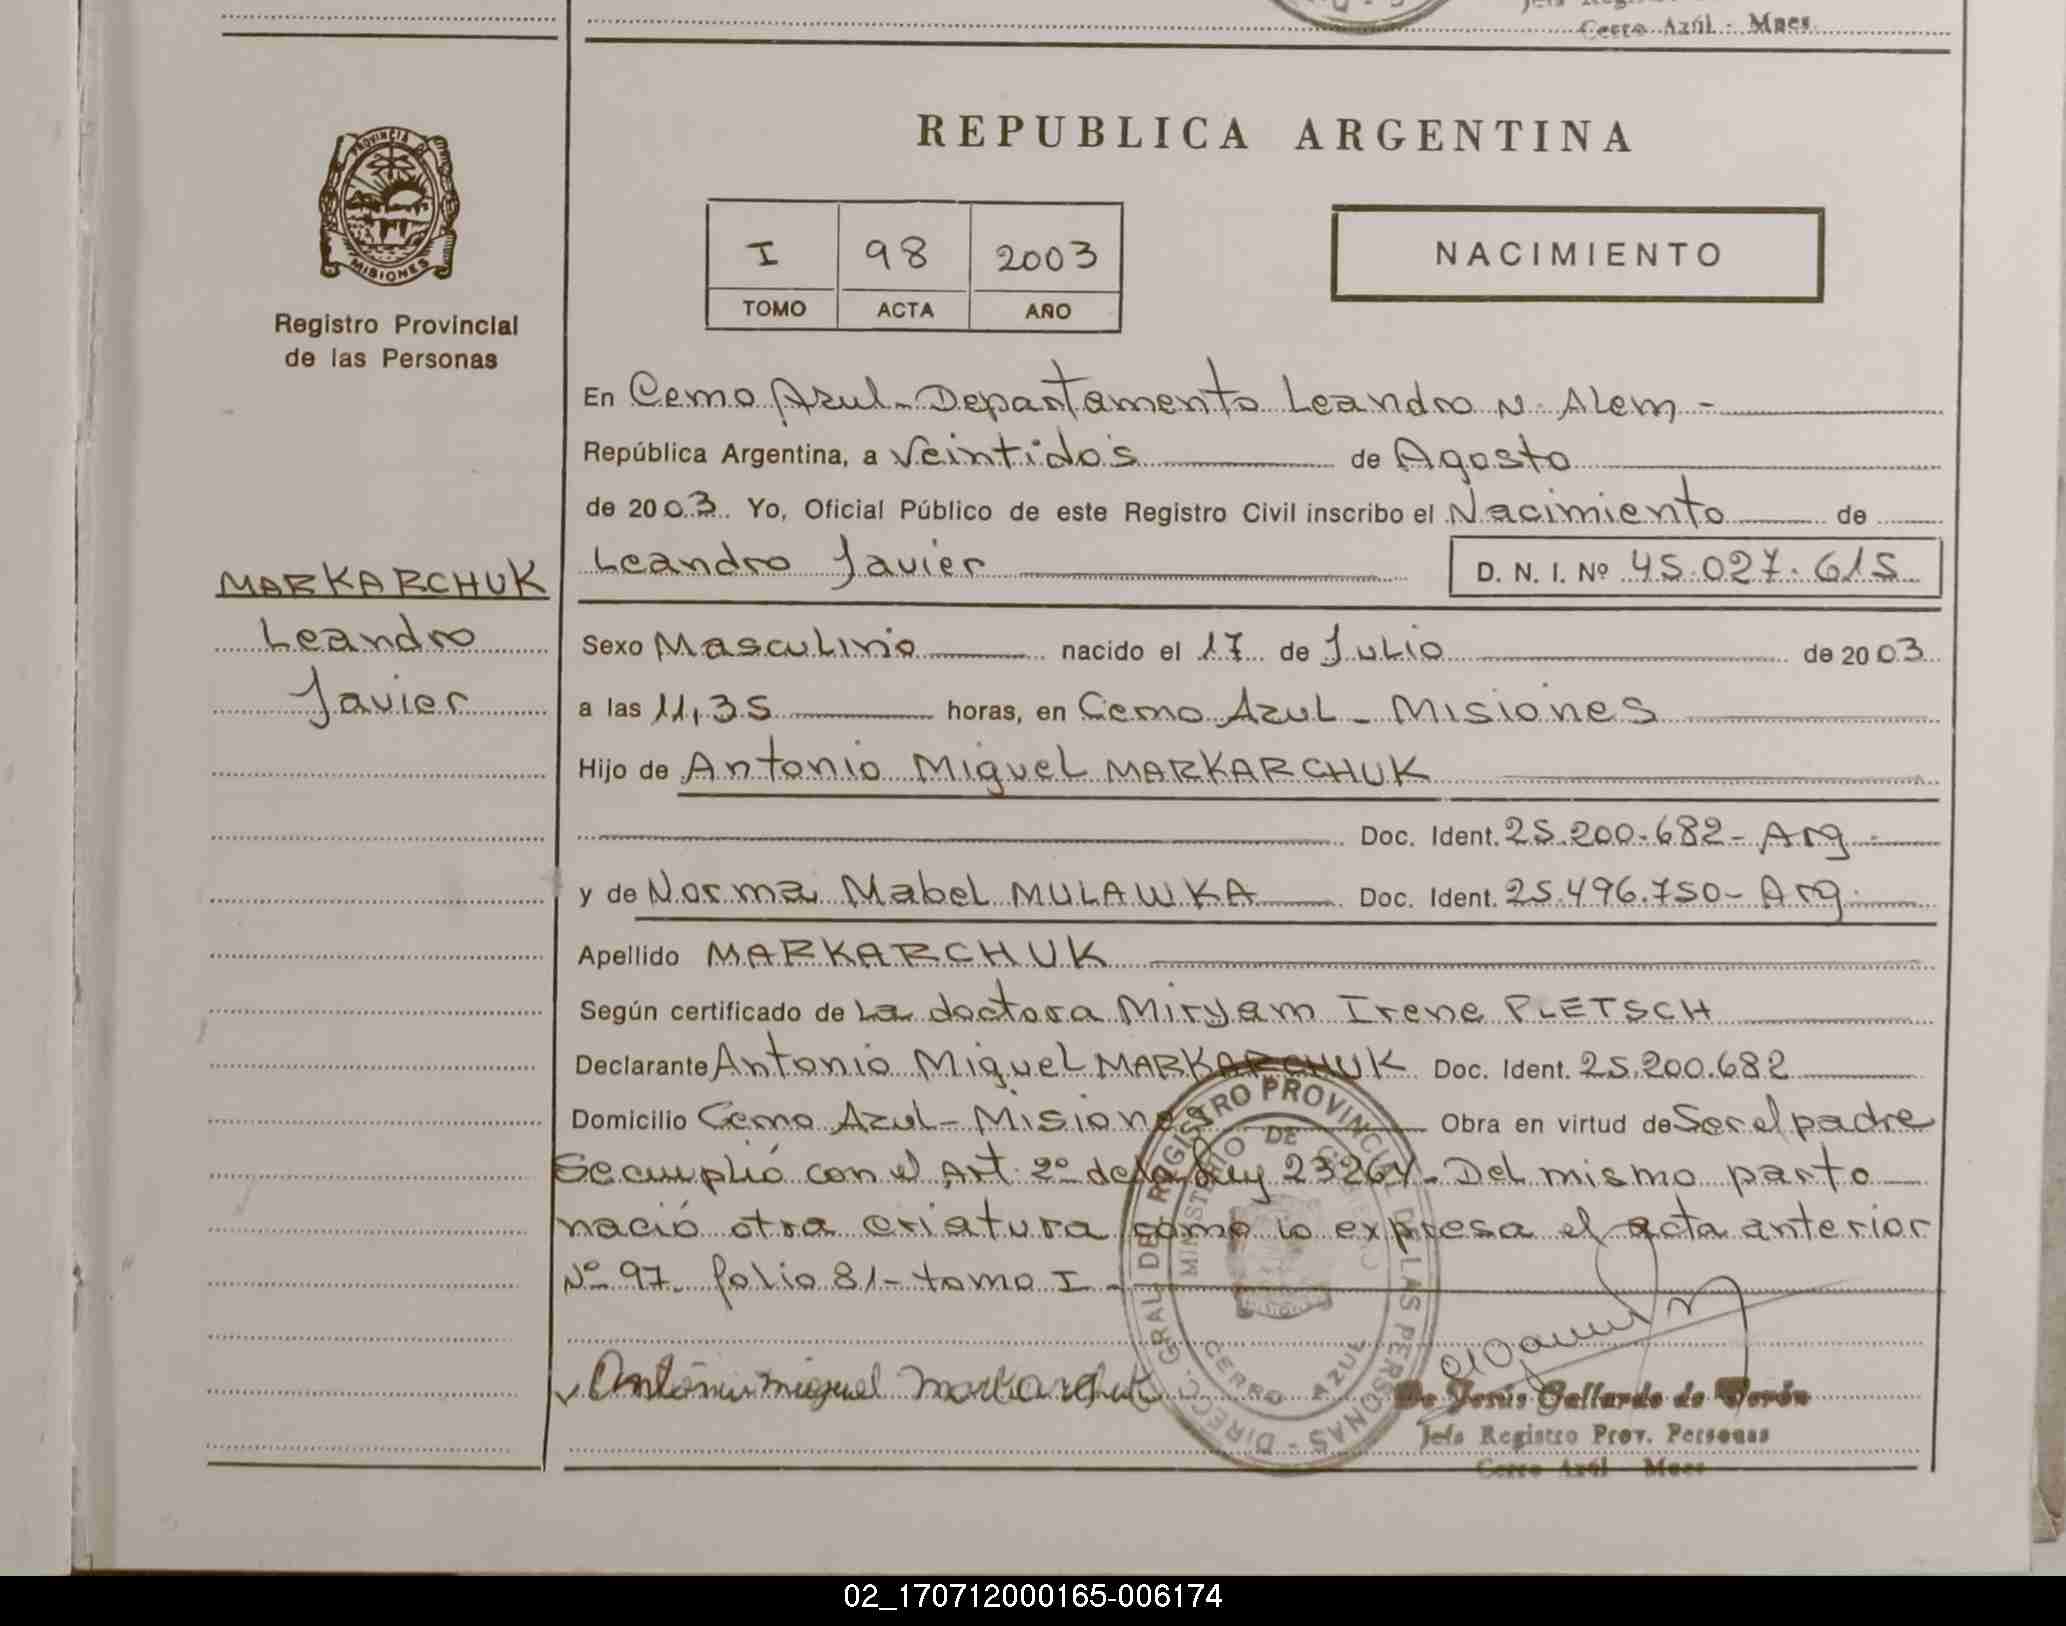 Cerro Azúl - Mnes.
PROVINCIA DE
MISIONES
Registro Provincial
de las Personas
REPUBLICA ARGENTINA
I 98 2003
TOMO ACTA AÑO
NACIMIENTO
En Cerro Azul - Departamento Leandro N. Alem -
República Argentina, a Veintidós de Agosto
de 2003. Yo, Oficial Público de este Registro Civil inscribo el Nacimiento de
Leandro Javier D. N. I. Nº 45.027.615
MARKARCHUK
Leandro
Javier
Sexo Masculino nacido el 17 de Julio de 2003
a las 11,35 horas, en Cerro Azul - Misiones
Hijo de Antonio Miguel MARKARCHUK
Doc. Ident. 25.200.682 - Arg.
y de Norma Mabel MULAWKA Doc. Ident. 25.496.750 - Arg.
Apellido MARKARCHUK
Según certificado de La doctora Miryam Irene PLETSCH
Declarante Antonio Miguel MARKARCHUK Doc. Ident. 25.200.682
Domicilio Cerro Azul - Misiones Obra en virtud de Ser el padre
Se cumplió con el Art. 2º de la Ley 23264. Del mismo parto
nació otra criatura como lo expresa el acta anterior
Nº 97. folio 81 - tomo I -
Antonio Miguel Markarchuk
DIRECC. GRAL. DE REGISTRO PROVINCIAL DE LAS PERSONAS
MINISTERIO DE GOBIERNO
CERRO AZUL
De Jesús Gallardo de Verón
Jefe Registro Prov. Personas
Cerro Azúl - Mnes
02_170712000165-006174